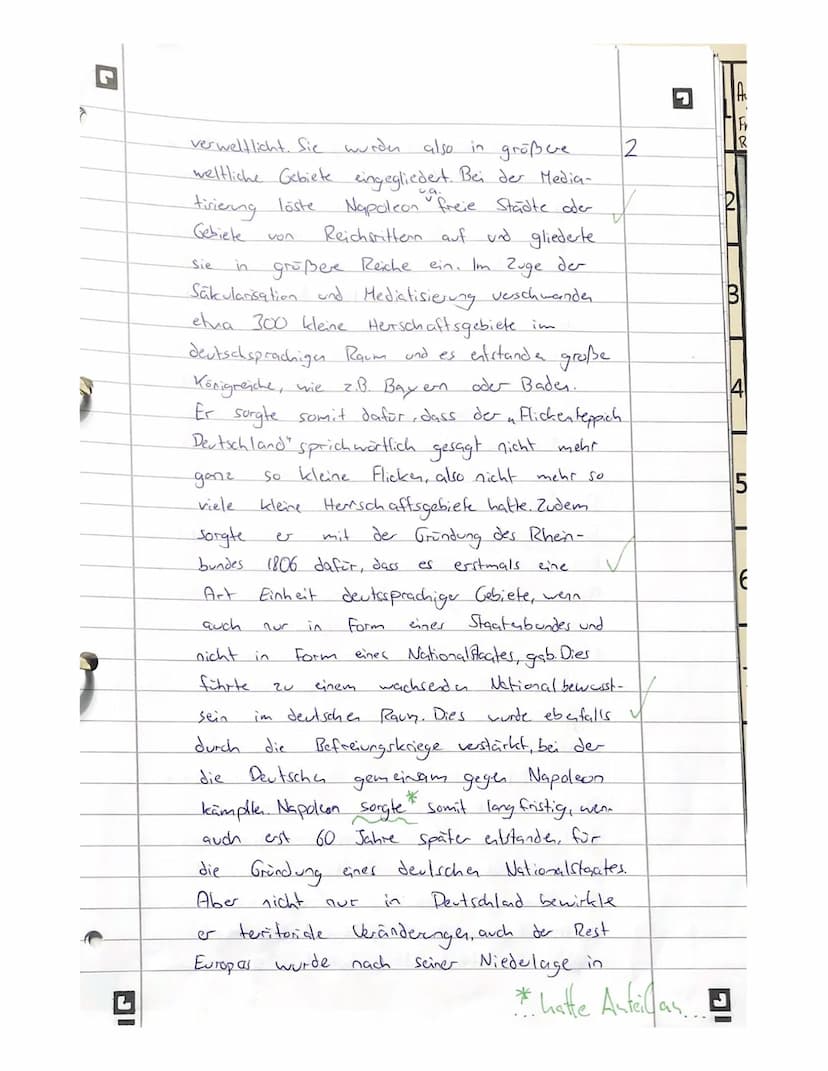 verweltlicht. Sie wurden also in größere 2
weltliche Gebiete eingegliedert. Bei der Media-
u.a.
tisierung löste Napoleon freie Städte oder
Gebiete von Reichsrittern auf und gliederte
sie in größere Reiche ein. Im Zuge der
Säkularisation und Mediatisierung verschwanden
etwa 300 kleine Herrschaftsgebiete im
deutschsprachigen Raum und es entstanden große
Königreiche, wie z.B. Bayern oder Baden.
Er sorgte somit dafür, dass der „Flickenteppich
Deutschland" sprichwörtlich gesagt nicht mehr
ganz so kleine Flicken, also nicht mehr so
viele kleine Herrschaftsgebiete hatte. Zudem
sorgte er mit der Gründung des Rhein-
bundes 1806 dafür, dass es erstmals eine
Art Einheit deutssprachiger Gebiete, wenn
auch nur in Form eines Staatenbundes und
nicht in Form eines Nationalstaates, gab. Dies
führte zu einem wachsenden Nationalbewusst-
sein im deutschen Raum. Dies wurde ebenfalls
durch die Befreiungskriege verstärkt, bei der
die Deutschen gemeinsam gegen Napoleon
kämpften. Napoleon sorgte* somit langfristig, wenn
auch erst 60 Jahre später entstanden, für
die Gründung eines deutschen Nationalstaates.
Aber nicht nur in Deutschland bewirkte
er teritoriale Veränderungen, auch der Rest
Europas wurde nach seiner Niederlage in
* ...hatte Anteil an...
A
F
R
2
3
4
5
6